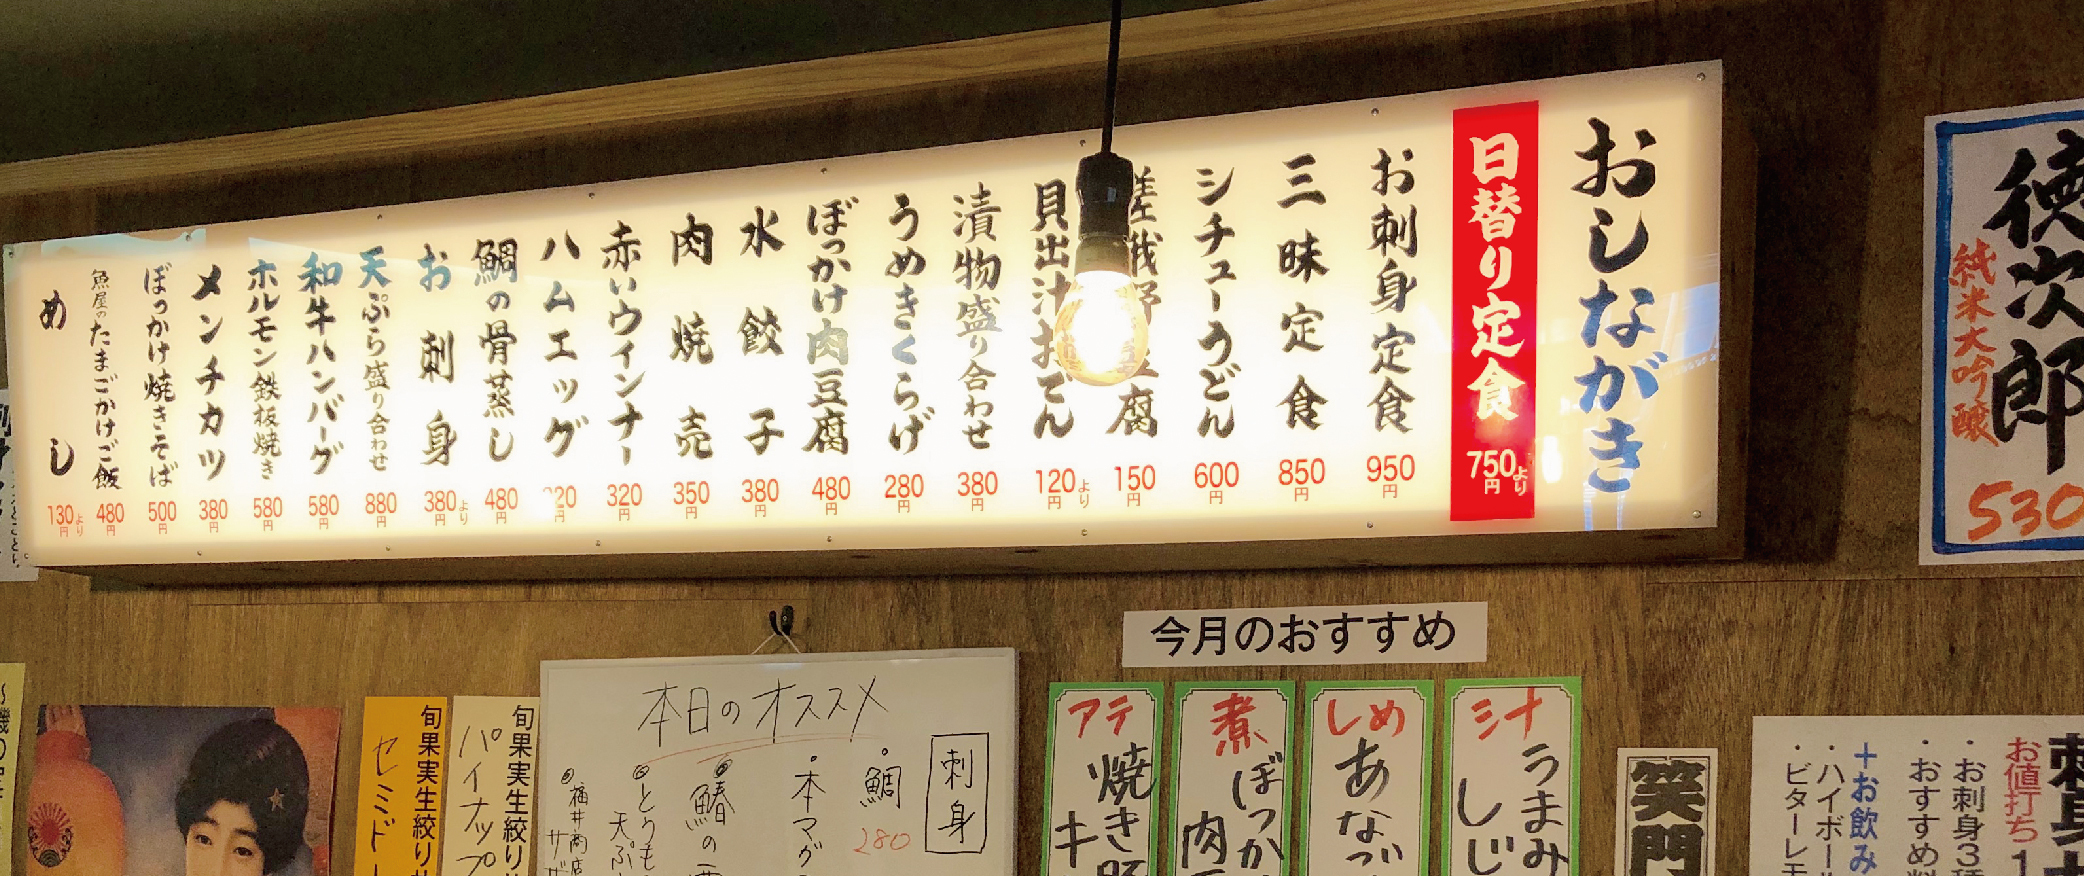 おしながき
日替り定食
750円より
お刺身定食
950円
三昧定食
850円
シチューうどん
600円
腐
150円
貝出汁おでん
120円より
漬物盛り合わせ
380円
うめきくらげ
280円
ぼっかけ肉豆腐
480円
水餃子
380円
肉焼売
350円
赤いウインナー
320円
ハムエッグ
20円
鯛の骨蒸し
480円
お刺身
380円より
天ぷら盛り合わせ
880円
和牛ハンバーグ
580円
ホルモン鉄板焼き
580円
メンチカツ
380円
ぼっかけ焼きそば
500円
魚屋のたまごかけご飯
480円
めし
130円より
徳次郎
純米大吟醸
530
今月のおすすめ
汁
うまみ
しじ
しめ
あな
煮
ぼっか
肉
アテ
焼き豚
キ
本日のオススメ
刺身
・鯛
280
・本マグ
鰆の
とうも
天ぷ
福井商店
サザ
旬果実生絞り
パイナップ
旬果実生絞り
セミド
笑門
刺身
お値打ち1
・お刺身3種
・おすすめ料
+お飲み
・ハイボール
・ビターレモ